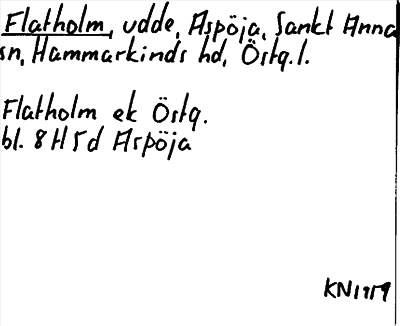 Flatholm, udde, Aspöja, Sankt Anna
sn, Hammarkinds hd, Östg.l.
Flatholm ek Östg.
bl. 8H5d Aspöja
KN1959